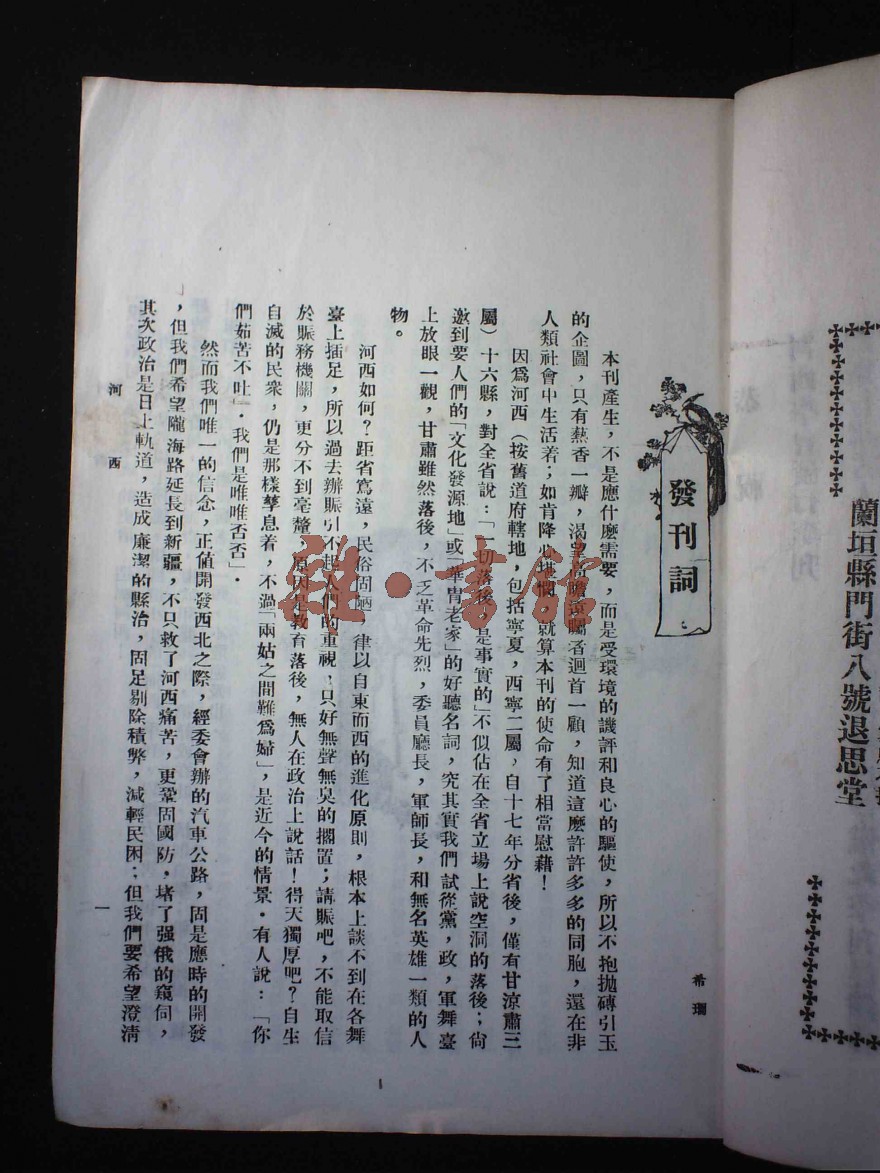 蘭垣縣門街八號退思堂
發刊詞
希
本刊產生，不是應什麼需要，而是受環境的譏評和良心的驅使，所以不抱拋磚引玉
的企圖，只有熱香一瓣，渴望高瞻遠矚者迴首一顧，知道這麼許許多多的同胞，還在非
人類社會中生活着；如肯降心 就算本刊的使命有了相當慰藉！
因爲河西（按舊道府轄地，包括寧夏，西寧二屬，自十七年分省後，僅有甘涼肅三
屬）十六縣，對全省說：「一切落後，是事實的」不似佔在全省立場上說空洞的落後；尙
邀到要人們的「文化發源地」或「華冑老家」的好聽名詞，究其實我們試從黨，政，軍舞臺
上放眼一觀，甘肅雖然落後，不乏革命先烈，委員廳長，軍師長，和無名英雄一類的人
物。
河西如何？距省寫遠，民俗固陋 律以自東而西的進化原則，根本上談不到在各舞
臺上插足，所以過去辦賑引不起人們的重視，只好無聲無臭的擱置；請賑吧，不能取信
於賑務機關，更分不到毫釐，原因是教育落後，無人在政治上說話！得天獨厚吧？自生
自滅的民衆，仍是那樣孳息着，不過「兩姑之間難爲婦」，是近今的情景・有人說：「你
們茹苦不吐」・我們是唯唯否否」・
然而我們唯一的信念，正値開發西北之際，經委會辦的汽車公路，固是應時的開發
」，但我們希望隴海路延長到新疆，不只救了河西痛苦，更鞏固國防・堵了强俄的窺伺，
其次政治是日上軌道，造成廉潔的縣治，固足剔除積弊，減輕民困；但我們要希望澄清
河西
一
雜・書館